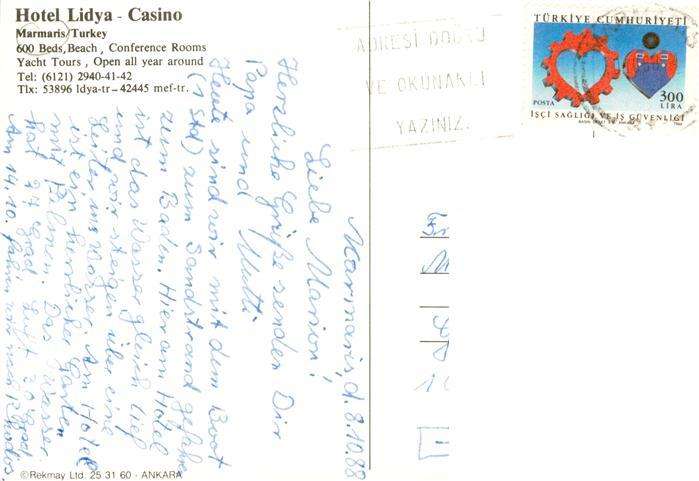 Hotel Lidya - Casino
Marmaris/Turkey
600 Beds, Beach , Conference Rooms
Yacht Tours , Open all year around
Tel: (6121) 2940-41-42
Tlx: 53896 ldya-tr – 42445 mef-tr.
ADRESİ DOĞRU
VE OKUNAKLI
YAZINIZ.
TÜRKİYE CUMHURİYETİ
POSTA
300
LİRA
İŞÇİ SAĞLIĞI VE İŞ GÜVENLİĞİ
Marmaris d. 8.10.88
Liebe Marion!
Herzliche Grüße senden Dir
Papa und Mutti
Heute sind wir mit dem Boot
(1 Std) zum Sandstrand gefahren
zum Baden. Hier am Hotel
ist das Wasser gleich tief
und wir steigen über eine
Leiter ins Wasser. Am Hotel
ist ein herrlicher Garten
mit Palmen. Das Wasser
hat 24 Grad Luft 30 Grad
Am 14.10. fahren wir nach Rhodos.
©Rekmay Ltd. 25 31 60 - ANKARA